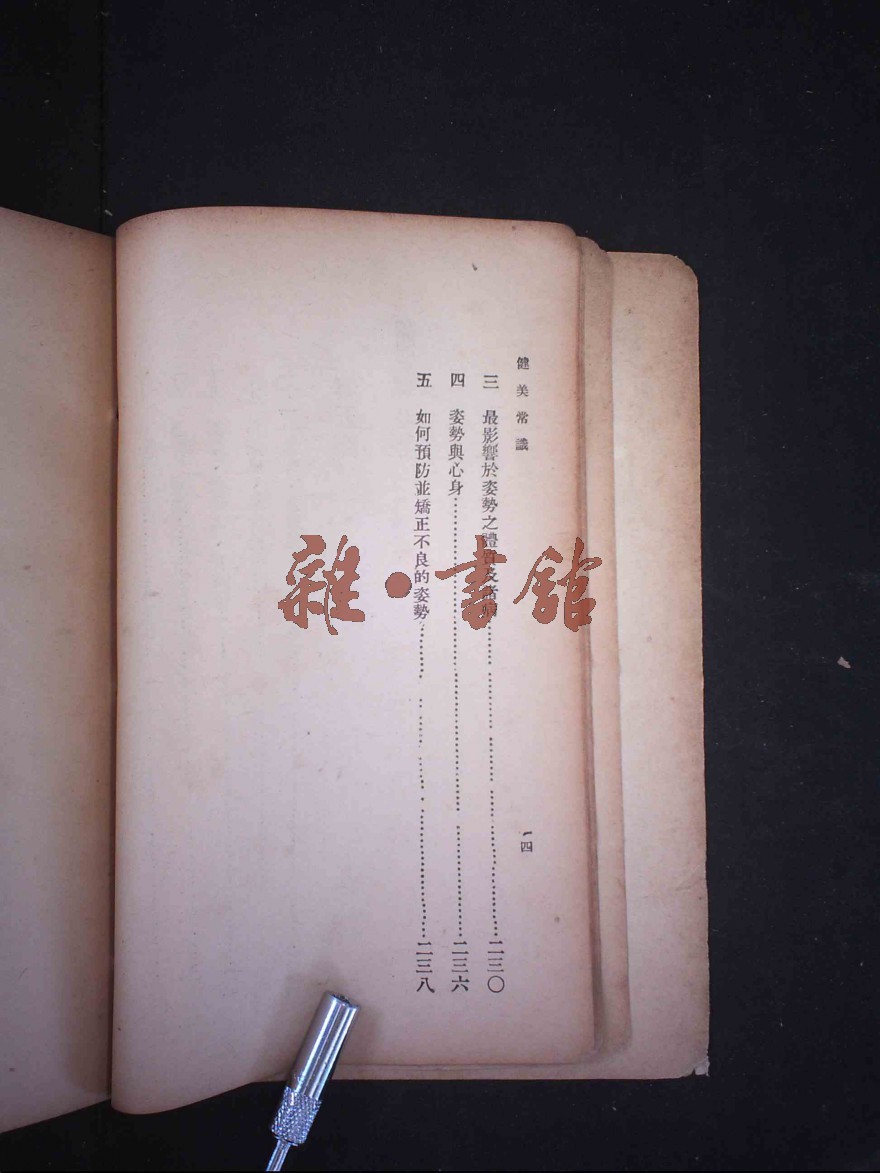 健美常識
一四
三 最影響於姿勢之體質及疾病……二三〇
四 姿勢與心身……二三六
五 如何預防並矯正不良的姿勢……二三八
雜·書館